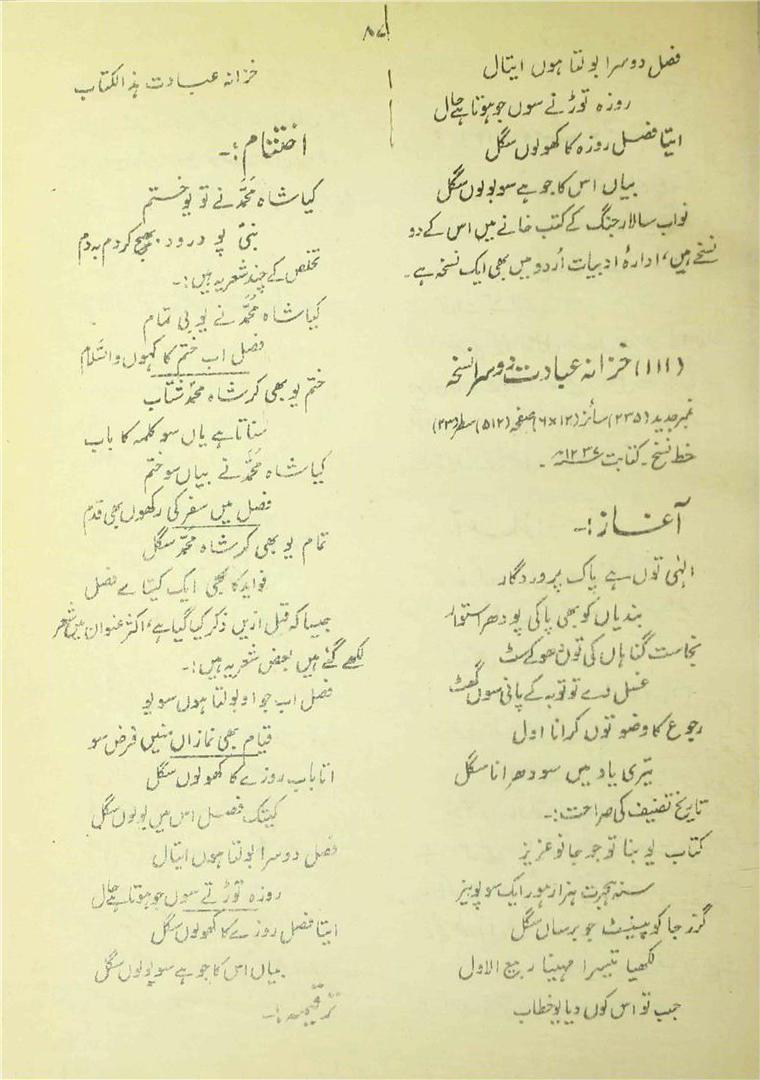 ۸۷
فصل دوسرا بولتا ہوں ایتال
روزہ توڑنے سوں جو ہوتا ہے حال
ایتا فصل روزہ کا کھولوں سگل
بیاں اس کا جو ہے سو بولوں سگل
نواب سالار جنگ کے کتب خانے میں اس کے دو
نسخے ہیں، ادارۂ ادبیات اُردو میں بھی ایک نسخہ ہے۔
(۱۱۱) خزانہ عبادت دوسرا نسخہ
نمبر جدید (۲۳۵) سائز (۱۲×۶) صفحہ (۵۱۲) سطر (۲۳)
خط نسخ۔ کتابت ۱۲۳۷ھ۔
آغاز:۔
الٰہی توں ہے پاک پروردگار
بندیاں کو بھی پاکی پو دھر استوار
نجاست گناہاں کی توں دھو کے سٹ
غسل دے تو توبہ کے پانی سوں گھٹ
رجوع کا وضو توں کرانا اول
تیری یاد میں سو دھرانا سگل
تاریخ تصنیف کی صراحت:۔
کتاب یو بنا تو جو جانو عزیز
سنہ ہجرت ہزار ہور ایک سو پو نیز
گزر جا کو پینسٹ جو برساں سگل
لکھیا تیسرا مہینا ربیع الاول
جب تو اس کوں دیا یو خطاب
خزانہ عبادت ہذا لکتاب
اختتام:۔
کیا شاہ محمدؐ نے تو یو ختم
نبیؐ پو درود بھیج کر دم بہ دم
تخلص کے چند شعر یہ ہیں:۔
کیا شاہ محمدؐ نے یو بی تمام
فصل اب ختم کا کہوں والسّلام
ختم یو بھی کر شاہ محمدؐ شتاب
سناتا ہے یاں سو کلمہ کا باب
کیا شاہ محمدؐ نے بیاں سو ختم
فصل میں سفر کی رکھوں بھی قدم
تمام یو بھی کر شاہ محمدؐ سگل
فواید کا بھی ایک کیتا ہے فصل
جیسا کہ قبل ازیں ذکر کیا گیا ہے، اکثر عنوان میں شعر
لکھے گئے ہیں بعض شعر یہ ہیں:۔
فصل اب جو او بولتا ہوں سو یو
قیام بھی نمازاں منیں فرض سو
اتا باب روزے کا کھولوں سگل
کیتک فصل اس میں بولوں سگل
فصل دوسرا بولتا ہوں ایتال
روزہ توڑتے سوں جو ہوتا ہے حال
ایتا فصل روزے کا کھولوں سگل
بیاں اس کا جو ہے سو بولوں سگل
ترقیمہ:۔